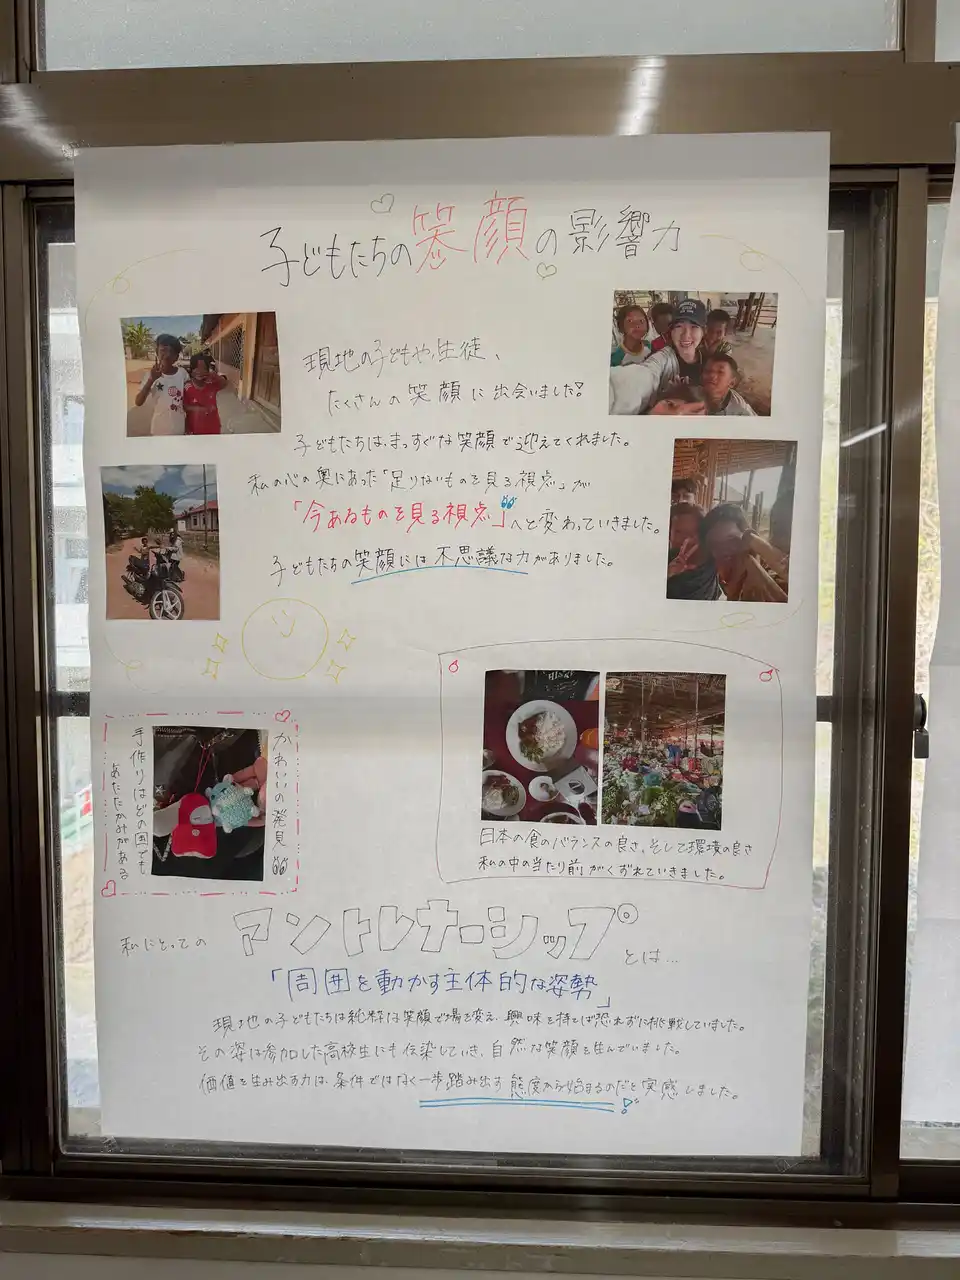 子どもたちの笑顔の影響力
現地の子どもや生徒、
たくさんの笑顔に出会いました!
子どもたちは、まっすぐな笑顔で迎えてくれました。
私の心の奥にあった「足りないものを見る視点」が
「今あるものを見る視点」へと変わっていきました。
子どもたちの笑顔には不思議な力がありました。
かわいいの発見
手作りはどの国でも
あたたかみがある
日本の食のバランスの良さ、そして環境の良さ
私の中の当たり前がくずれていきました。
私にとっての アントレナーシップ とは…
「周囲を動かす主体的な姿勢」
現地の子どもたちは純粋な笑顔で場を変え、興味を持てば恐れずに挑戦していました。
その姿は参加した高校生にも伝染していき、自然な笑顔を生んでいました。
価値を生み出す力は、条件ではなく一歩踏み出す態度から始まるのだと実感しました。